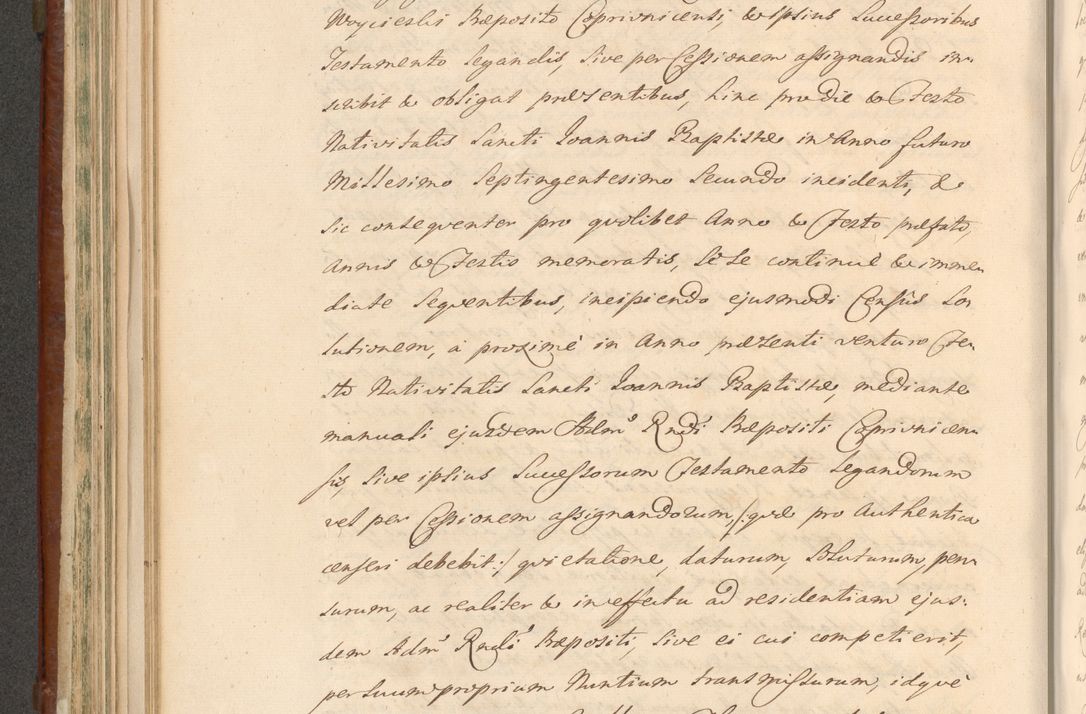 Woyciecki Præposito Coprivnicensi, & Ipsius Successoribus
Testamento Legandis, sive per Cessionem assignandis in-
scribit & obligat præsentibus, hinc pridie & Festo
Nativitatis Sancti Joannis Baptistæ in Anno futuro
Millesimo Septingentesimo Secundo incidenti, &
sic consequenter pro quolibet Anno & Festo præfato,
Annis & Festis memoratis, sese continuè & imme-
diate sequentibus, incipiendo ejusmodi Censûs So-
lutionem, à proximè in Anno præsenti venturo Fe-
sto Nativitatis Sancti Joannis Baptistæ, mediante
manuali ejusdem Adm. Rndi Præpositi Coprivnicen-
sis, sive ipsius Successorum Testamento Legandorum
vel per Cessionem assignandorum, /:quæ pro Authentica
censeri debebit:/ quietatione, daturum, Soluturum, pen-
surum, ac realiter & in effectu ad residentiam ejus-
dem Adm. Rndi Præpositi, sive ei cui competierit,
per suum proprium Nuntium transmissurum, idquè